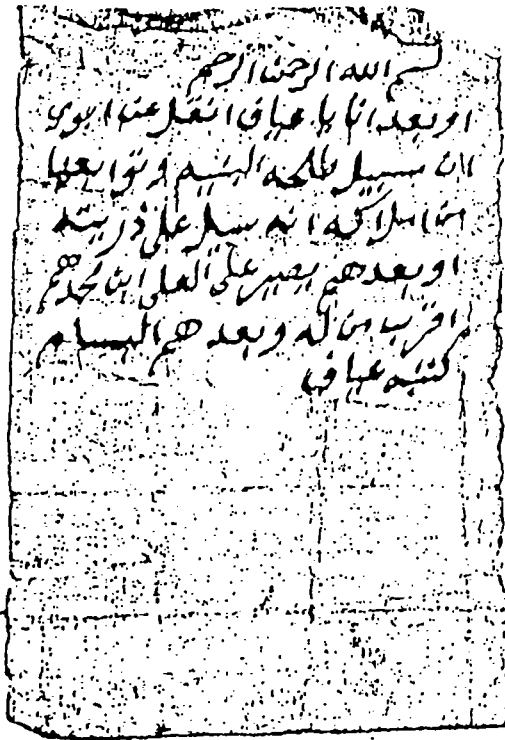 بسم الله الرحمن الرحيم
اوبعد انا يا عياف انقل عن ابوي
ان سبيل طلحه اليتيم وتوابعها
من املاكه انه سبل على ذريته
اوبعدهم يصير على العلي ابن محمد هم
اقرب من له وبعدهم البسام
كتبه عياف